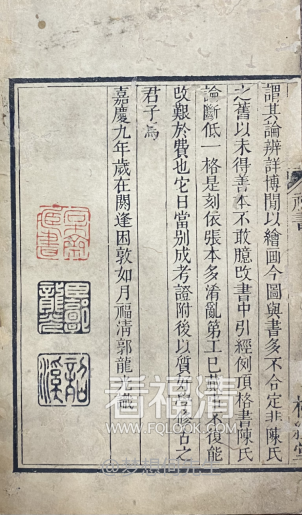 謂其論辨詳博閒以繪画今圖與書多不合定非陳氏
之舊以未得善本不敢臆改書中引經例頂格書陳氏
論斷低一格是刻依張本多淆亂第工已復能
改艱於費也它日當別成考證附後以質古之
君子焉
嘉慶九年歲在閼逢困敦如月福清郭龍光識
郭龍光
看福清
LOOKFUQING.COM